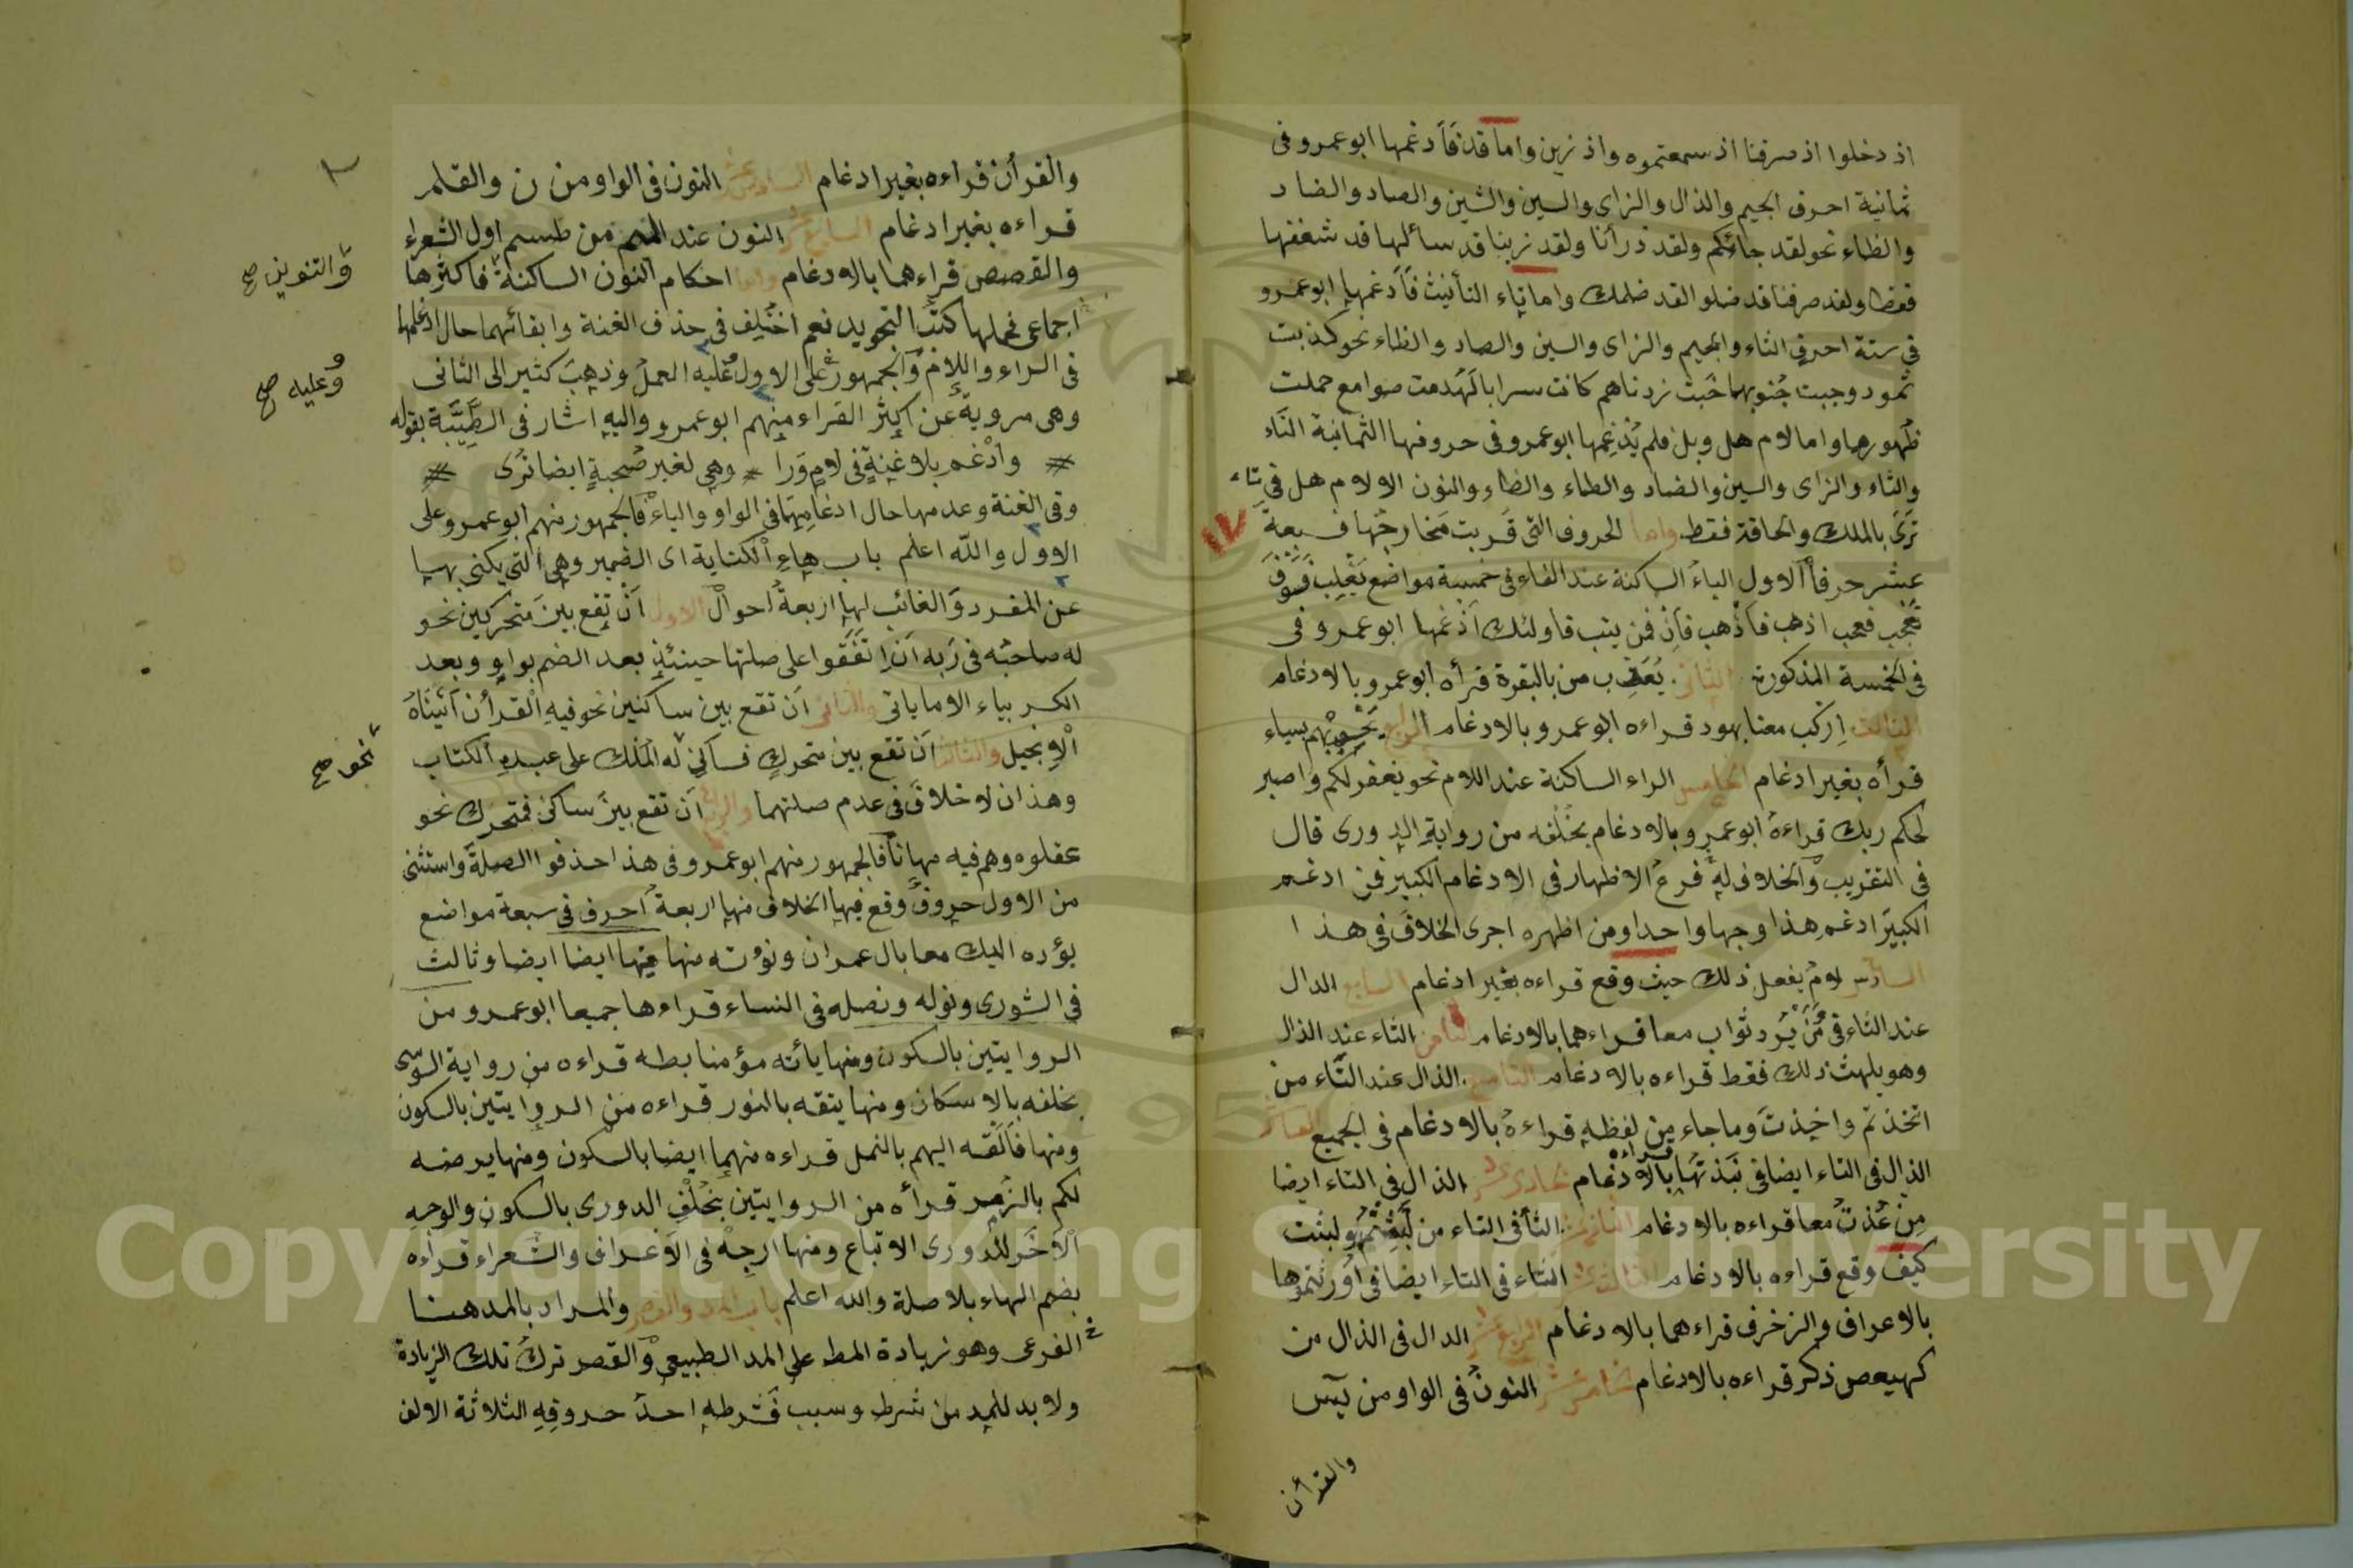 اذ دخلوا اذ صرفنا اذ سمعتموه واذ زين واما قد فَاَدغمها ابو عمرو فى
ثمانية احرف الجيم والذال والزاى والسين والشين والصاد والضاد
والظاء نحو لقد جائكم ولقد ذرأنا ولقد زينا قد سألها قد شغفها
ولقد صرفنا قد ضلوا لقد ظلمك واما تاء التأنيث فَاَدغمها ابو عمرو
فى ستة احرف الثاء والجيم والزاى والسين والصاد والظاء نحو كذبت
ثمود وجبت جُنوبها خَبَت زدناهم كانت سرابا لَهُدمت صوامع حملت
ظهورها واما لام هل وبل فلم يُدْغِمها ابو عمرو فى حروفها الثمانية التاء
والثاء والزاى والسين والضاد والطاء والظاء والنون الا لام هل فى تاء
تَرَى بالملك والحاقة فقط واما الحروف التى قربت مخارجها فسبعة
عشر حرفاً الاول الباء الساكنة عند الفاء فى خمسة مواضع يَغْلِب فَسَوْفَ
تَعْجَب فعجب اذهب فَاذْهب فَاِنّ فمن يتب فاولئك اَدْغمها ابو عمرو فى
فى الخمسة المذكورة الثانى يُعَذِّب من بالبقرة قرأه ابو عمرو بالادغام
الثالث اِركب معنا بهود قراءه ابو عمرو بالادغام الرابع نَخْسِفْ بِهِم بسباء
قرأه بغير ادغام الخامس الراء الساكنة عند اللام نحو نغفر لكم واصبر
لحكم ربك قراءهُ ابو عمرو بالادغام بخُلْفه من روايةِ الدورى قال
فى التقريب والخلاف لهُ فرعُ الاظهار فى الادغام الكبير فمن ادغم
الكبيرَ ادغم هذا وجها واحدا ومن اظهره اجرى الخلافَ فى هذا
السادس لامُ يفعل ذلك حيث وقع قراءه بغير ادغام السابع الدال
عند الثاء فى مَنْ يُرِد ثواب معا قراءهما بالادغام الثامن الثاء عند الذال
وهو يلهث ذلك فقط قراءه بالادغام التاسع الذال عند التَّاء من
اتخذتم واخِذتَ وما جاء مِن لفظهِ قراءهُ بالادغام فى الجميع العاشر
الذال فى التاء ايضا فى نَبَذتُهَا قراءه بالادغام الحادى عشر الذال فى التاء ايضا
مِن عُذتُ معا قراءه بالادغام الثانى عشر الثأ فى التاء من لَبِثْتُمْ ولبثت
كيف وقع قراءه بالادغام الثالث عشر الثاء فى التاء ايضا فى اُورثتموها
بالاعراف والزخرف قراءهما بالادغام الرابع عشر الدال فى الذال من
كهيعص ذكر قراءه بالادغام الخامس عشر النونُ فى الواو من يٓس
والقرأن
والقرأن قراءه بغير ادغام السادس عشر النون فى الواو من ن والقلم
قراءه بغير ادغام السابع عشر النون عند الميم من طسم اول الشعراء
والقصص قراءهما بالادغام واما احكام النون الساكنة فاكثرها
والتنوين صح
اجماعى فمحلها كتبُ التجويد نعم اختُلِف فى حذف الغنة وابقائهما حال ادغامها
فى الراء واللام والجمهورُ على الاول عليه العملُ وذهبَ كثير الى الثانى
وعليه صح
وهى مروية عن اكثر القراء منهم ابو عمرو واليه اشار فى الطَّيِّبَة بقوله
وادْغم بلا غنةٍ فى لامٍ وَرا وهى لغير صُحبةٍ ايضا تُرى
وفى الغنة وعدمها حال ادغامها فى الواو والياء فالجمهور منهم ابو عمرو على
الاول والله اعلم باب هاءِ الكناية اى الضمير وهى التى يكنى بها
عن المفرد الغائب لها اربعةُ احوالٍ الاول اَنْ تقع بينَ متحركين نحو
له صاحبُه فى رَبه اَن اِتَّفَقوا على صلتها حينئذٍ بعد الضم بواوٍ وبعد
الكسر بياء الا ما ياتى والثانى اَن تقع بين ساكنين نحو فيهِ القرأن اَتَيْنَاهُ
الْاِنجيل والثالث اَن تقع بين متحركٍ فساكنٍ لَه المُلك على عبدِهِ الكتاب
نحو صح
وهذان لا خلافَ فى عدم صلتهما والرابع اَن تقع بينَ ساكن فمتحرك نحو
عقلوه وهم فيه مهانا فالجمهور منهم ابو عمرو فى هذا حذفوا الصلة واستثنى
من الاول حروفٌ وقع فيها الخلاف منها اربعةُ احرف فى سبعة مواضع
يؤده اليك معا بال عمران ونؤته منها فيها ايضا ايضا وثالث
فى الشورى ونوله ونصله فى النساء قراءها جميعا ابو عمرو من
الروايتين بالسكون ومنها يأته مؤمنا بطه قراءه من رواية السّوسى
بخلفه بالاسكان ومنها يتقه بالنور قراءه من الروايتين بالسكون
ومنها فَاَلقه اليهم بالنمل قراءه منهما ايضا بالسكون ومنها يرضه
لكم بالزُمر قرأه من الروايتين بِخُلْفِ الدورى بالسكون والوجهِ
الْاَخَر للدورى الاتباع ومنها ارجِهْ فى الاَعراف والشعراء قراءه
بضم الهاء بلا صلة والله اعلم باب المد والقصر والمراد بالمد هنا
الفرعى وهو زيادة المط على المد الطبيعى والقصر تركُ تلك الزيادة
ولا بد للمد من شرط وسبب فشرطه احدُ حروفِهِ الثلاثة الالف
Copyright © King Saud University